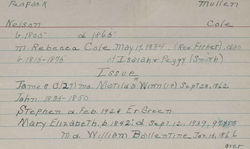 Penpark Mullen
Nelson Cole
b. 1805 d 1865
m Rebecca Cole May 15, 1834 (Rev Fisher)
b. 1815-1875 Isaiah & Peggy (Smith)
Issue
James (1827) ma. Matilda Winn Sept 28, 1862
John 1835-1850
Stephen d. Feb 1928 Er Green
Mary Elizabeth b 1842 d Sept 12, 1939, 97
md William Ballentine Jan 18, 1866
over